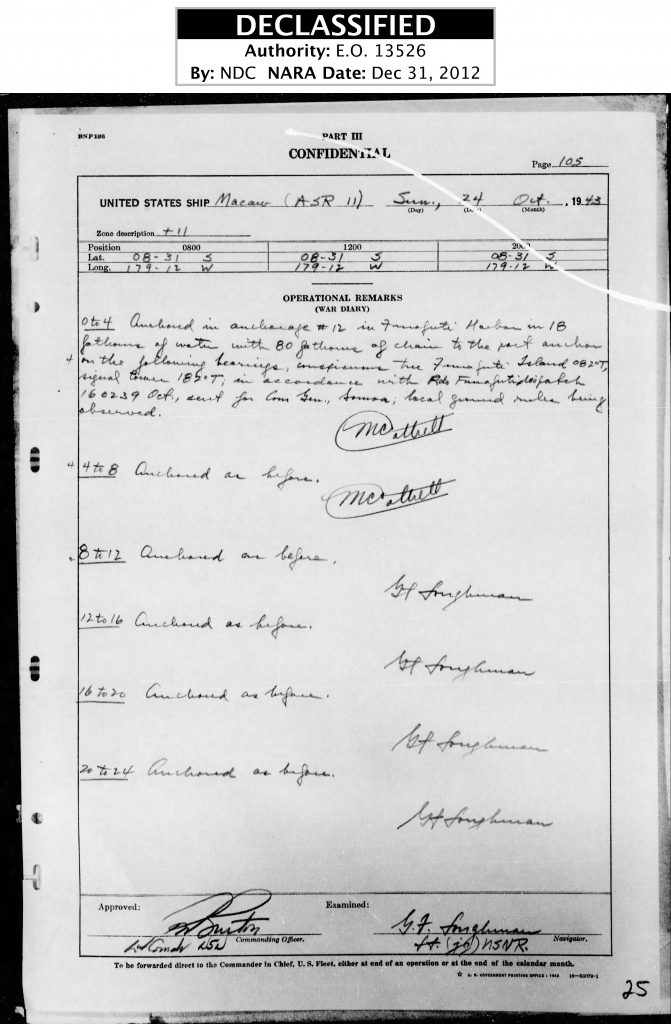 DECLASSIFIED
Authority: E.O. 13526
By: NDC NARA Date: Dec 31, 2012
BNP 186
PART III
CONFIDENTIAL
Page 105
UNITED STATES SHIP Macaw (ASR 11) Sun., 24 Oct., 1943
(Day) (Date) (Month)
Zone description +11
Position 0800 1200 2000
Lat. 08-31 S 08-31 S 08-31 S
Long. 179-12 W 179-12 W 179-12 W
OPERATIONAL REMARKS
(WAR DIARY)
0 to 4 Anchored in anchorage #12 in Funafuti Harbor in 18
fathoms of water with 80 fathoms of chain to the port anchor
on the following bearings, conspicuous tree Funafuti Island 082°T,
signal tower 182°T; in accordance with Rdo Funafuti dispatch
160239 Oct., sent for Com Gen., Samoa; local ground rules being
observed.
4 to 8 Anchored as before.
8 to 12 Anchored as before.
12 to 16 Anchored as before.
16 to 20 Anchored as before.
20 to 24 Anchored as before.
Approved: Examined:
Burton G.F.
Lt Comdr USN Commanding Officer. Lt. (jg) USNR. Navigator.
To be forwarded direct to the Commander in Chief, U. S. Fleet, either at end of an operation or at the end of the calendar month.
☆ U. S. GOVERNMENT PRINTING OFFICE: 1942
25